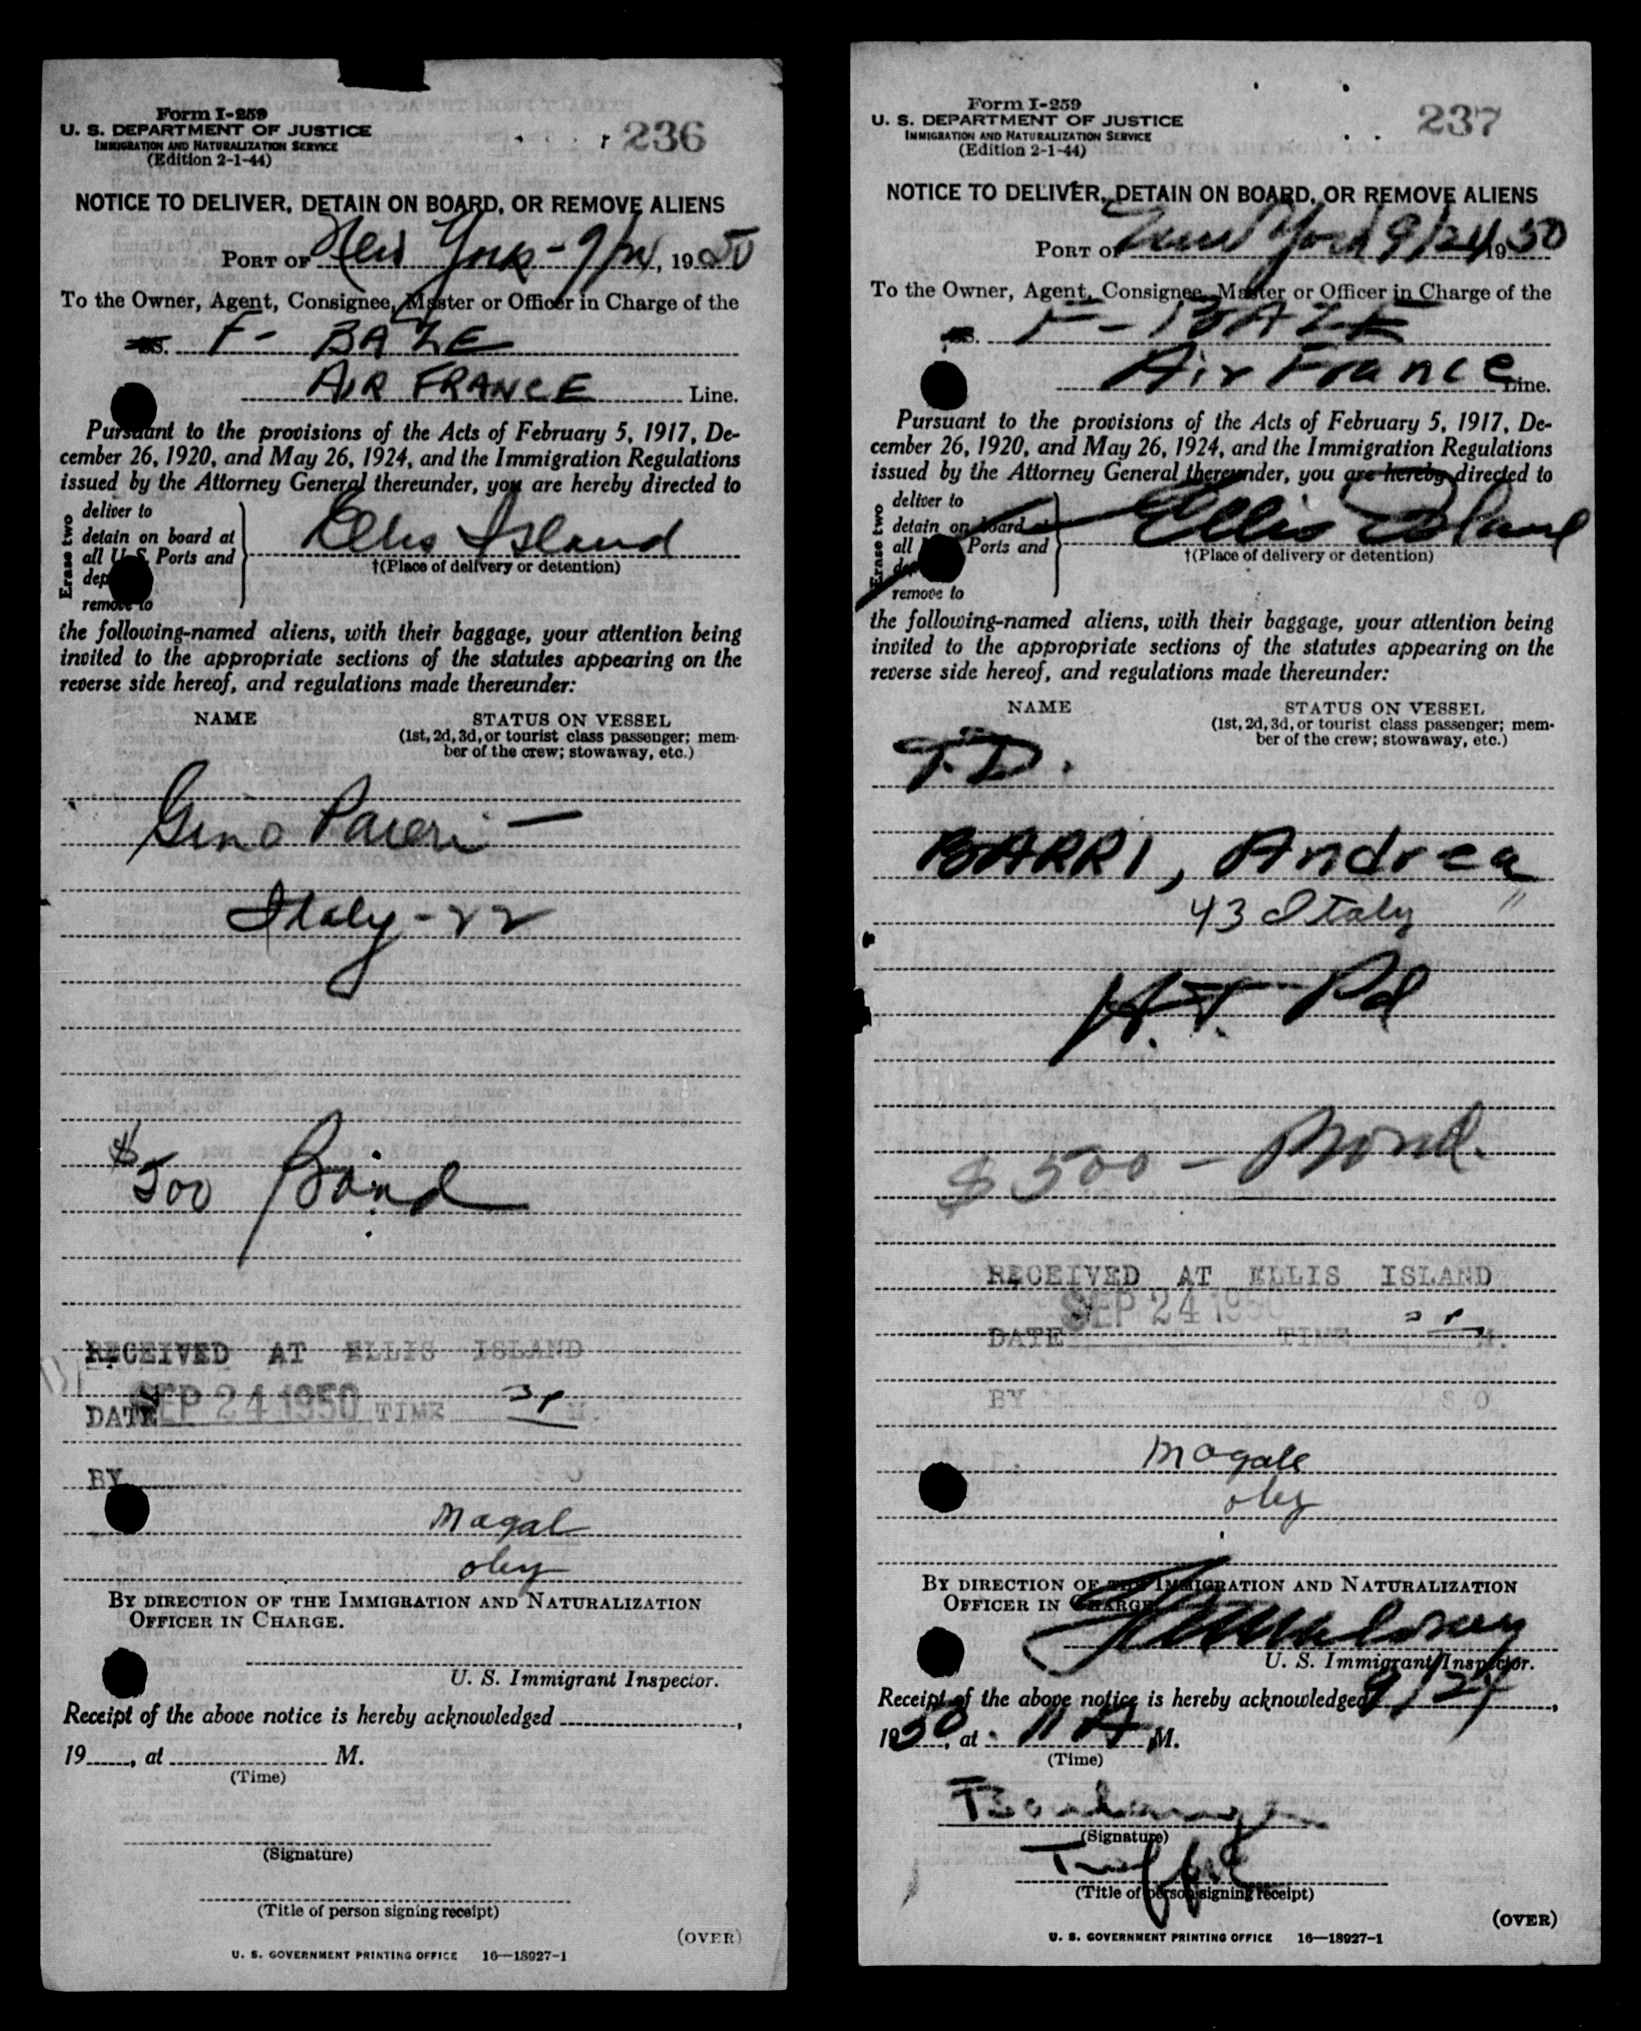 Form I-259
U. S. DEPARTMENT OF JUSTICE
IMMIGRATION AND NATURALIZATION SERVICE
(Edition 2-1-44)
236
NOTICE TO DELIVER, DETAIN ON BOARD, OR REMOVE ALIENS
PORT OF New York - 9/24, 1950
To the Owner, Agent, Consignee, Master or Officer in Charge of the
SS. F- BAZE
AIR FRANCE Line.
Pursuant to the provisions of the Acts of February 5, 1917, De-
cember 26, 1920, and May 26, 1924, and the Immigration Regulations
issued by the Attorney General thereunder, you are hereby directed to
Erase two
deliver to
detain on board at
all U. S. Ports and
remove to
Ellis Island
†(Place of delivery or detention)
the following-named aliens, with their baggage, your attention being
invited to the appropriate sections of the statutes appearing on the
reverse side hereof, and regulations made thereunder:
NAME
STATUS ON VESSEL
(1st, 2d, 3d, or tourist class passenger; mem-
ber of the crew; stowaway, etc.)
Gino
Italy - 22
$500 Bond
RECEIVED AT ELLIS ISLAND
SEP 24 1950
DATE TIME 3 P M.
BY
Magal
oley
BY DIRECTION OF THE IMMIGRATION AND NATURALIZATION
OFFICER IN CHARGE.
U. S. Immigrant Inspector.
Receipt of the above notice is hereby acknowledged ,
19 , at M.
(Time)
(Signature)
(Title of person signing receipt)
(OVER)
U. S. GOVERNMENT PRINTING OFFICE 16—18927-1
Form I-259
U. S. DEPARTMENT OF JUSTICE
IMMIGRATION AND NATURALIZATION SERVICE
(Edition 2-1-44)
237
NOTICE TO DELIVER, DETAIN ON BOARD, OR REMOVE ALIENS
PORT OF New York 9/24 1950
To the Owner, Agent, Consignee, Master or Officer in Charge of the
SS. F - BAZE
Air France Line.
Pursuant to the provisions of the Acts of February 5, 1917, De-
cember 26, 1920, and May 26, 1924, and the Immigration Regulations
issued by the Attorney General thereunder, you are hereby directed to
Erase two
deliver to
detain on board at
all Ports and
remove to
Ellis Island
†(Place of delivery or detention)
the following-named aliens, with their baggage, your attention being
invited to the appropriate sections of the statutes appearing on the
reverse side hereof, and regulations made thereunder:
NAME
STATUS ON VESSEL
(1st, 2d, 3d, or tourist class passenger; mem-
ber of the crew; stowaway, etc.)
T.D.
BARRI, Andrea
43 Italy "
H.T. Pd
$500 - Bond.
RECEIVED AT ELLIS ISLAND
SEP 24 1950
DATE TIME M.
BY
Magale
oley
BY DIRECTION OF THE IMMIGRATION AND NATURALIZATION
OFFICER IN CHARGE.
U. S. Immigrant Inspector.
Receipt of the above notice is hereby acknowledged 9/24,
1950, at 11 A M.
(Time)
(Signature)
Traffic
(Title of person signing receipt)
(OVER)
U. S. GOVERNMENT PRINTING OFFICE 16—18927-1